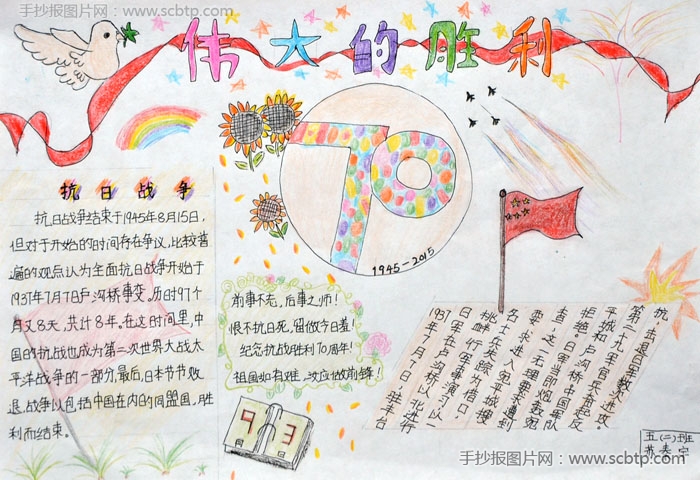 手抄报图片网:www.scbtp.com
伟大的胜利
70
1945-2015
抗日战争
抗日战争结束于1945年8月15日,
但对于开始的时间存在争议,比较普
遍的观点认为全面抗日战争开始于
1937年7月7日卢沟桥事变。历时97个
月又8天,共计8年。在这时间里,中
国的抗战也成为第二次世界大战太
平洋战争的一部分。最后,日本节节败
退,战争以包括中国在内的同盟国,胜
利而结束。
前事不忘,后事之师!
恨不抗日死,留做今日羞!
纪念抗战胜利70周年!
祖国如有难,汝应做前锋!
9 3
1937年7月7日,驻丰台
日军在卢沟桥以北进行
挑衅 军事演习,以一
名士兵失踪为借口,
要求进入宛平城搜
查,这一无理要求遭到
拒绝。日军当即炮轰宛
平城和卢沟桥,中国军队
第二十九军官兵奋起反
抗,击退日军数次进攻
五(二)班
苏 宁
手抄报图片网:www.scbtp.com